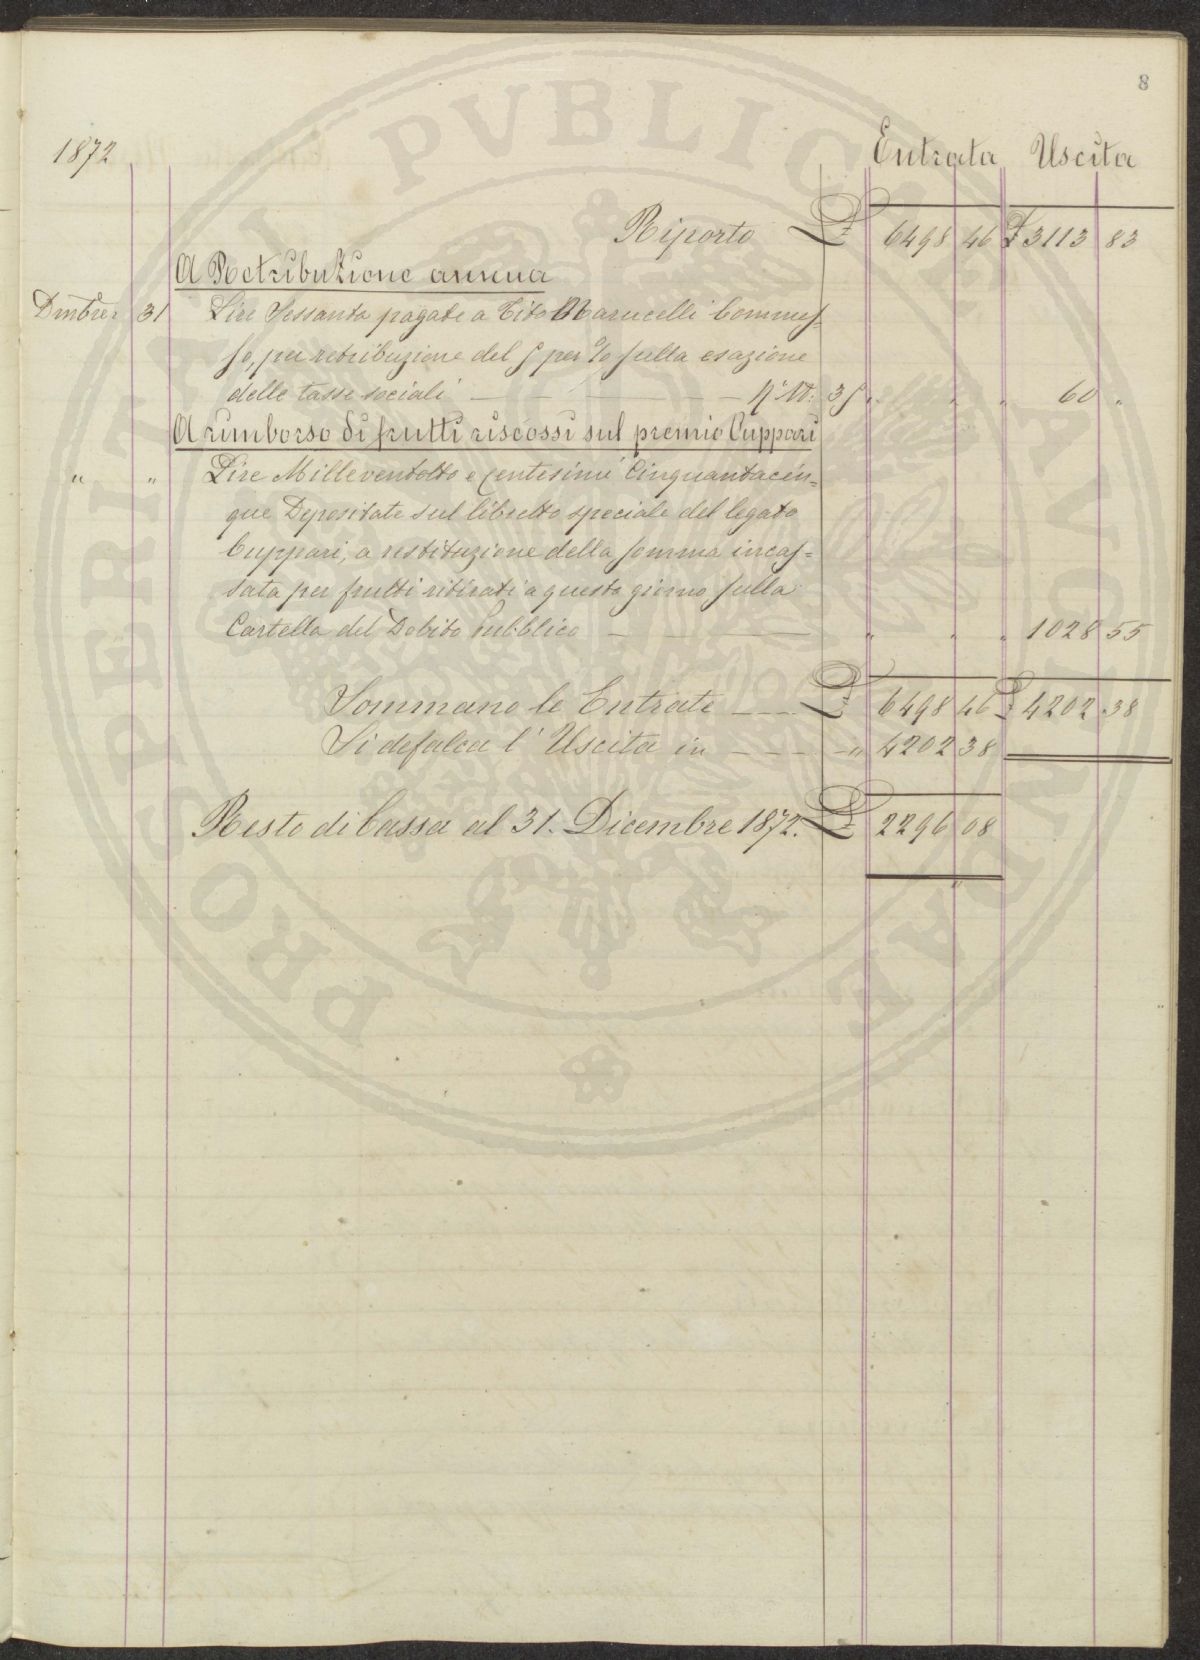 8
1872 Entrata Uscita
Riporto £ 6498 46 £ 3113 83
A Retribuzione annua
Dmbre 31 Lire Sessanta pagate a Tito Marucelli Commes=
so, per retribuzione del 5 per % sulla esazione
delle tasse sociali — — — — N. 35 " " " 60 "
A rimborso di frutti riscossi sul premio Cuppari
" " Lire Milleventotto e Centesimi Cinquantacin=
que Depositate sul libretto speciale del legato
Cuppari, a restituzione della somma incas=
sata per frutti ritirati a questo giorno sulla
Cartella del Debito Pubblico — — — " " " 1028 55
Sommano le Entrate — £ 6498 46 £ 4202 38
Si defalca l'Uscita in — — — " 4202 38
Resto di Cassa al 31. Dicembre 1872. £ 2296 08
PROSPERITATI PUBLICAE AUGENDAE